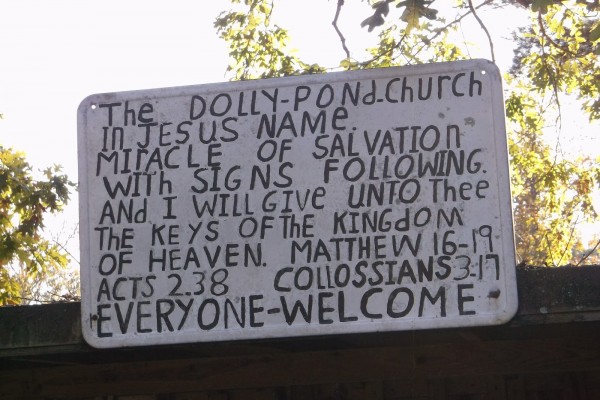 The DOLLY-POnd-Church
In JESUS NAME.
MIRACLE OF SALVATIOn
WITH SIGNS FOLLOWING.
And I WILL GIVE UNTO Thee
THE KEYS OF THE KINGDOM
OF HEAVEN. MATTHEW 16-19
ACTS 2.38 COLLOSSIANS 3-17
EVERYONE-WELCOME